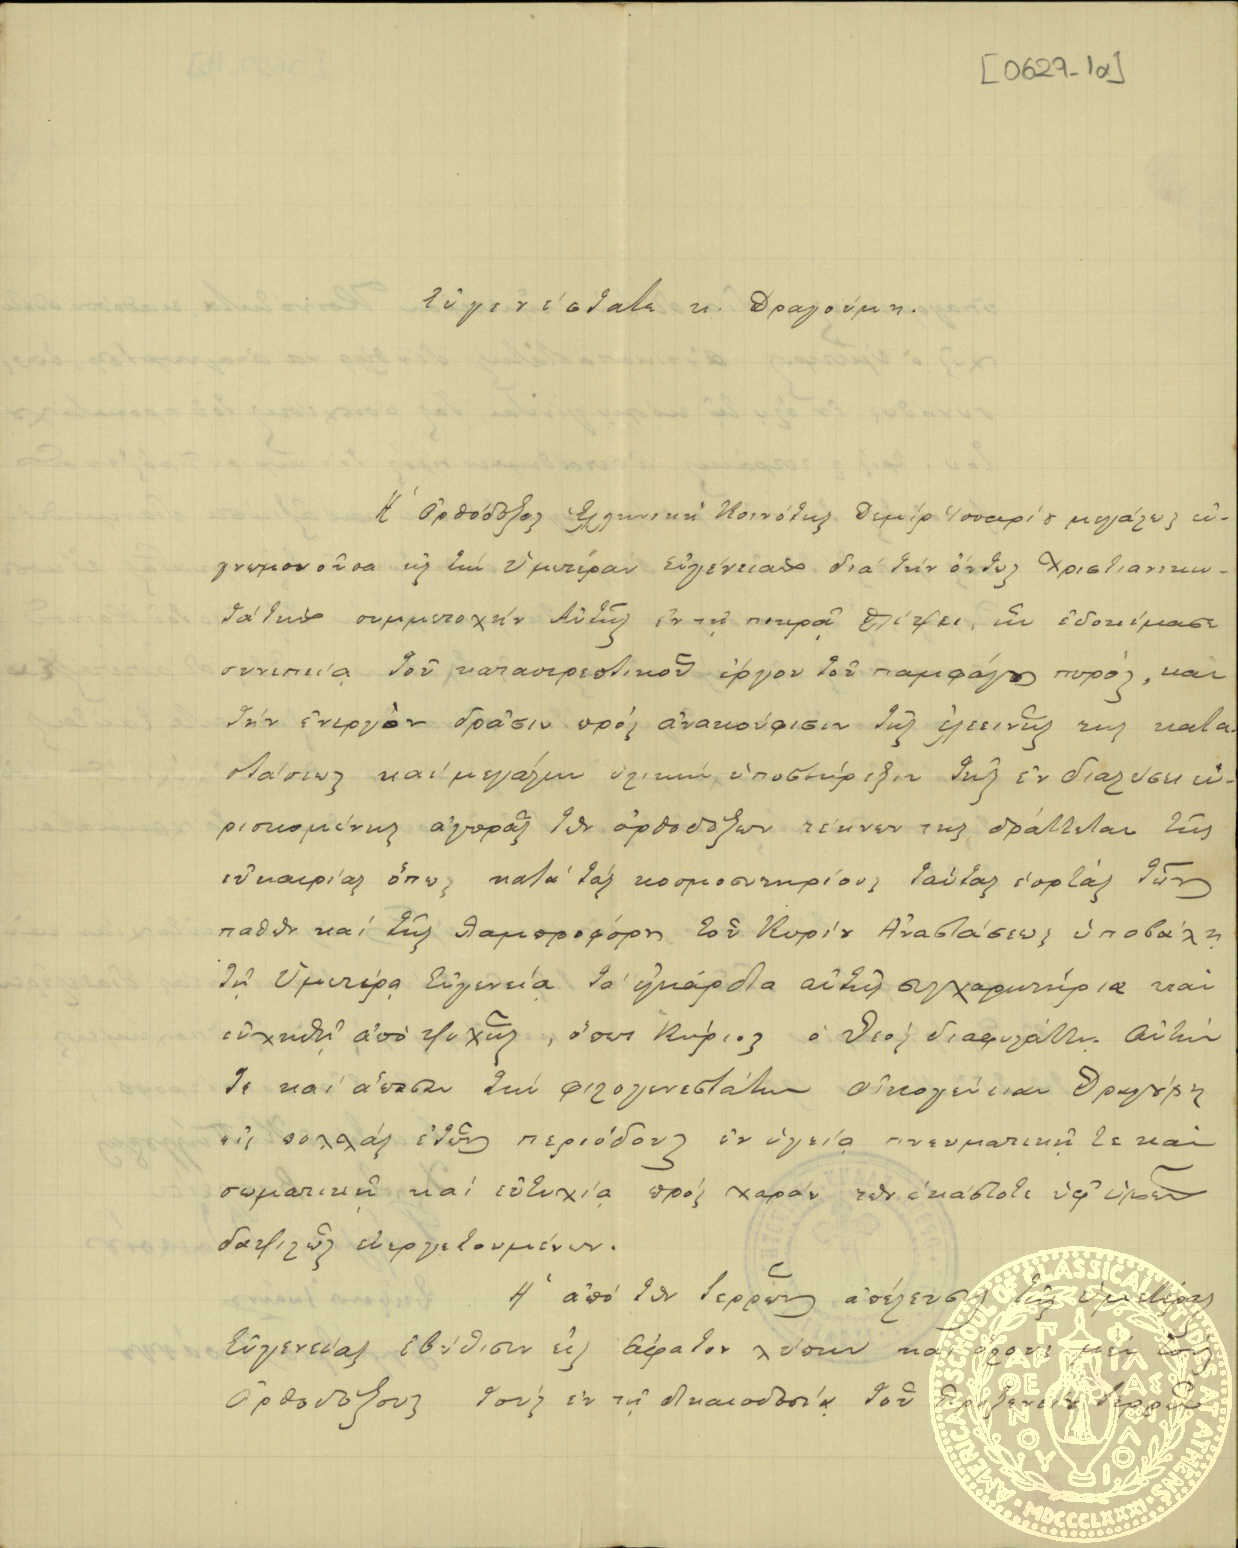 [0627-1α]
Εὐγενέστατε κ. Δραγούμη.
Ἡ Ὀρθόδοξος Ἑλληνικὴ Κοινότης Δεμὶρ Ἰσσαρίου μεγάλως εὐ-
γνωμονοῦσα εἰς τὴν Ὑμετέραν Εὐγένειαν διὰ τὴν ὄντως Χριστιανικω-
τάτην συμμετοχὴν Αὐτῆς ἐν τῇ πικρᾷ θλίψει, ἣν ἐδοκίμασε
συνεπείᾳ τοῦ καταστρεπτικοῦ ἔργου τοῦ παμφάγου πυρός, καὶ
τὴν ἐνεργὸν δρᾶσιν πρὸς ἀνακούφισιν τῆς ἐλεεινῆς της κατα-
στάσεως καὶ μεγάλην ὑλικὴν ὑποστήριξιν τῆς ἐν διαλύσει εὑ-
ρισκομένης ἀγορᾶς τῶν ὀρθοδόξων τέκνων της δράττεται τῆς
εὐκαιρίας ὅπως κατὰ τὰς κοσμοσωτηρίους ταύτας ἑορτὰς τῶν
παθῶν καὶ τῆς λαμπροφόρου τοῦ Κυρίου Ἀναστάσεως ὑποβάλῃ
τῇ Ὑμετέρᾳ Εὐγενείᾳ τὰ ἐγκάρδια αὐτῆς συγχαρητήρια καὶ
εὐχηθῇ ἀπὸ ψυχῆς, ὅπως Κύριος ὁ Θεὸς διαφυλάττῃ Αὐτήν
τε καὶ ἅπασαν τὴν φιλογενεστάτην οἰκογένειαν Δραγούμη
εἰς πολλὰς ἐτῶν περιόδους ἐν ὑγείᾳ πνευματικῇ τε καὶ
σωματικῇ καὶ εὐτυχίᾳ πρὸς χαρὰν τῶν ἑκάστοτε ὑφ' ὑμῶν
δαψιλῶς εὐεργετουμένων.
Ἡ ἀπὸ τῶν Σερρῶν ἀπέλευσις τῆς Ὑμετέρας
Εὐγενείας ἐβύθισεν εἰς ἄφατον λύπην καὶ ὅλους μὲν τοὺς
Ὀρθοδόξους τοὺς ἐν τῇ δικαιοδοσίᾳ τοῦ Προξενείου Σερρῶν
AMERICAN SCHOOL OF CLASSICAL STUDIES AT ATHENS
MDCCCLXXXI